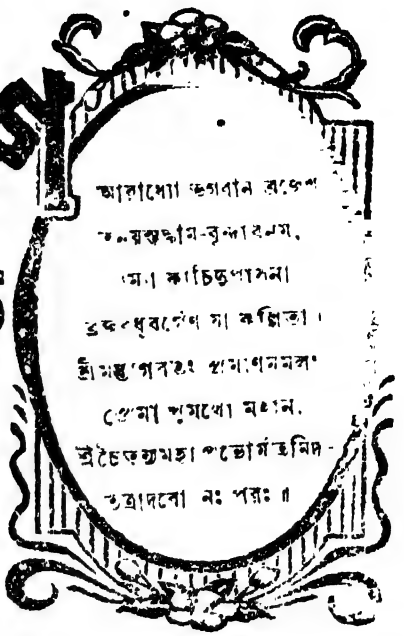 আরাধ্যো ভগবান ব্রজেশ
তনয়স্তদ্ধাম-বৃন্দাবনম,
রম্যা কাচিদুপাসনা
ব্রজবধূবর্গেণ যা কল্পিতা।
শ্রীমদ্ভাগবতং প্রমাণমমলং
প্রেমা পুমর্থো মহান,
শ্রীচৈতন্যমহাপ্রভোর্মতমিদ-
তত্রাদরো নঃ পরঃ॥